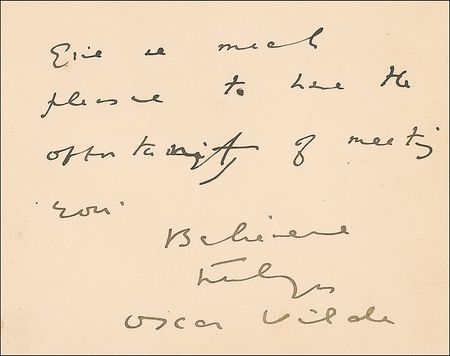 Give me much
pleasure to have the
opportunity of meeting
you.
Believe me
truly yrs
Oscar Wilde